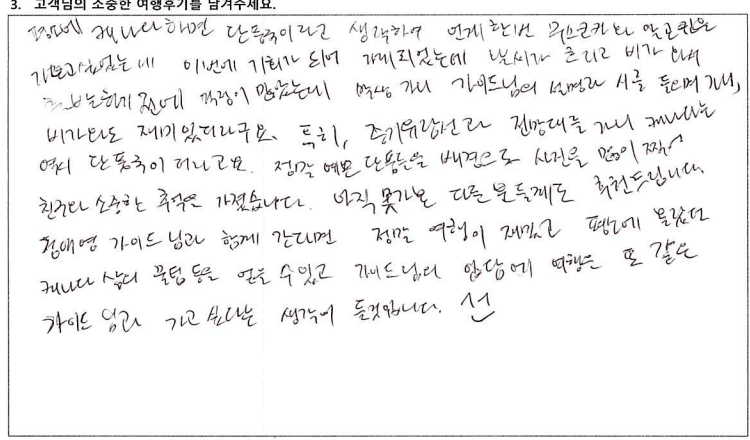 3. 고객님의 소중한 여행후기를 남겨주세요.
평소에 캐나다하면 단풍국이라고 생각하여 언제한번 무스코카와 알고퀸을
가보고싶었는데 이번에 기회가 되어 가게되었는데 날씨가 흐리고 비가 와서
출발하기 전에 걱정이 많았는데 막상 가니 가이드님의 설명과 시를 들으며 가니,
비가와도 재미있더라구요. 특히, 증기유람선과 전망대를 가니 캐나다는
역시 단풍국이더라고요. 정말 예쁜 단풍들을 배경으로 사진을 많이 찍어
친구와 소중한 추억을 가졌습니다. 아직 못가본 다른 분들께도 추천드립니다.
정애영 가이드님과 함께 간다면 정말 여행이 재밌고 평소에 몰랐던
캐나다 삶의 꿀팁 등을 얻을 수 있고 가이드님의 입담에 여행을 또 같은
가이드님과 가고 싶다는 생각이 들것입니다.